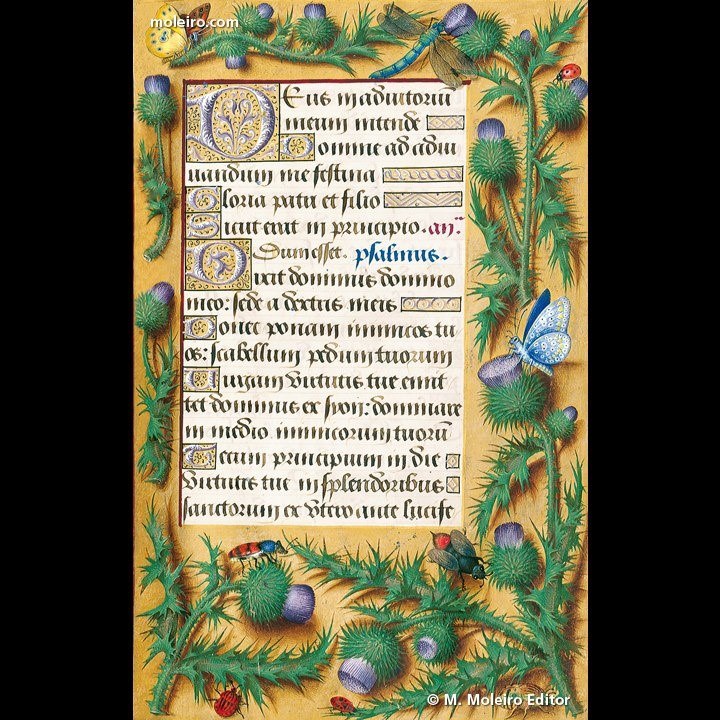 moleiro.com
Deus in adiutoriū
meum intende
Domine ad adiu
uandum me festina
Gloria patri et filio
Sicut erat in principio. añ.
Dum esset. psalmus.
Dixit dominus domino
meo: sede a dextris meis
Donec ponam inimicos tu
os: scabellum pedum tuorum
Uirgam virtutis tue emit
tet dominus ex syon: dominare
in medio inimicorum tuorū
Tecum principium in die
virtutis tue in splendoribus
sanctorum ex vtero ante lucife
© M. Moleiro Editor